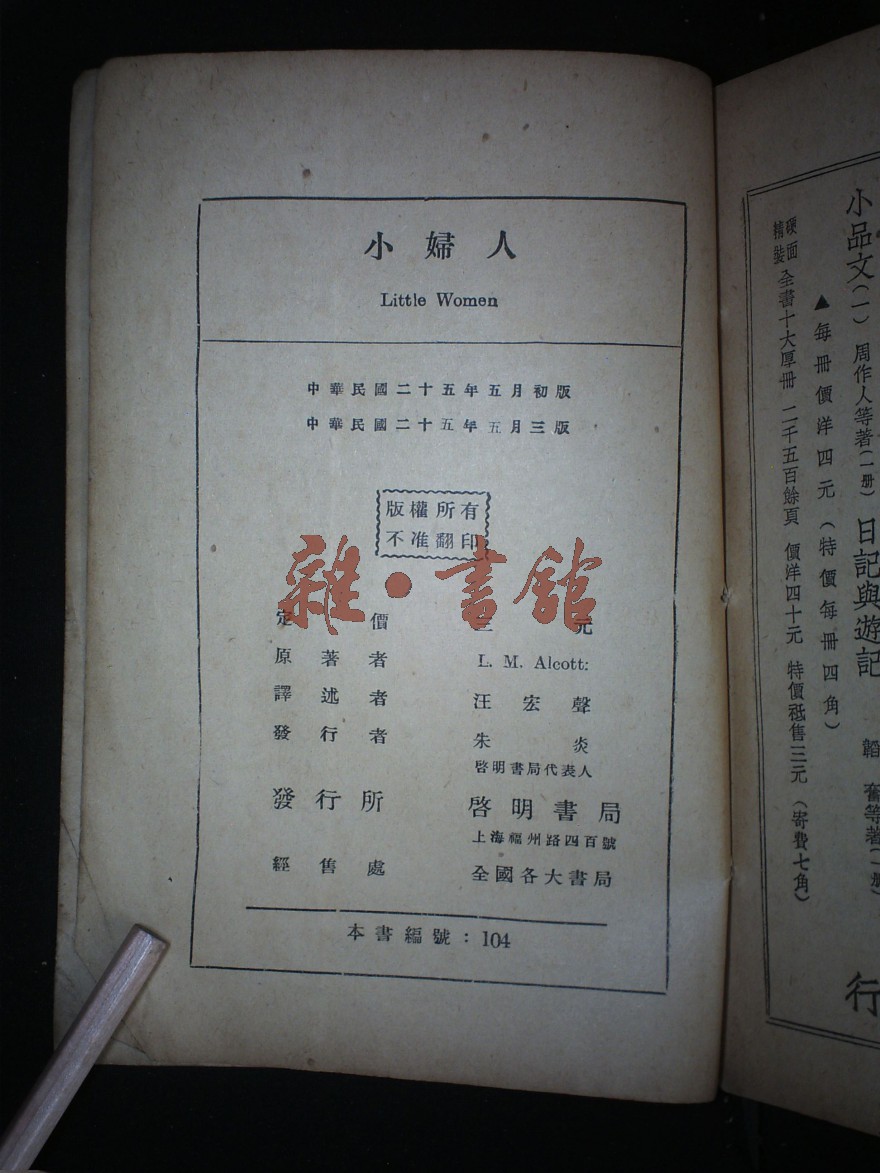 小婦人
Little Women
中華民國二十五年五月初版
中華民國二十五年五月三版
版權所有
不准翻印
雜·書舘
定價 元
原著者 L. M. Alcott:
譯述者 汪宏聲
發行者 朱炎
啓明書局代表人
發行所 啓明書局
上海福州路四百號
經售處 全國各大書局
本書編號：104
小品文(一) 周作人等著(一册) 日記與遊記 韜奮等著(一册)
行
▲每冊價洋四元（特價每冊四角）
硬面精裝 全書十大厚冊 二千五百餘頁 價洋四十元 特價祗售三元（寄費七角）